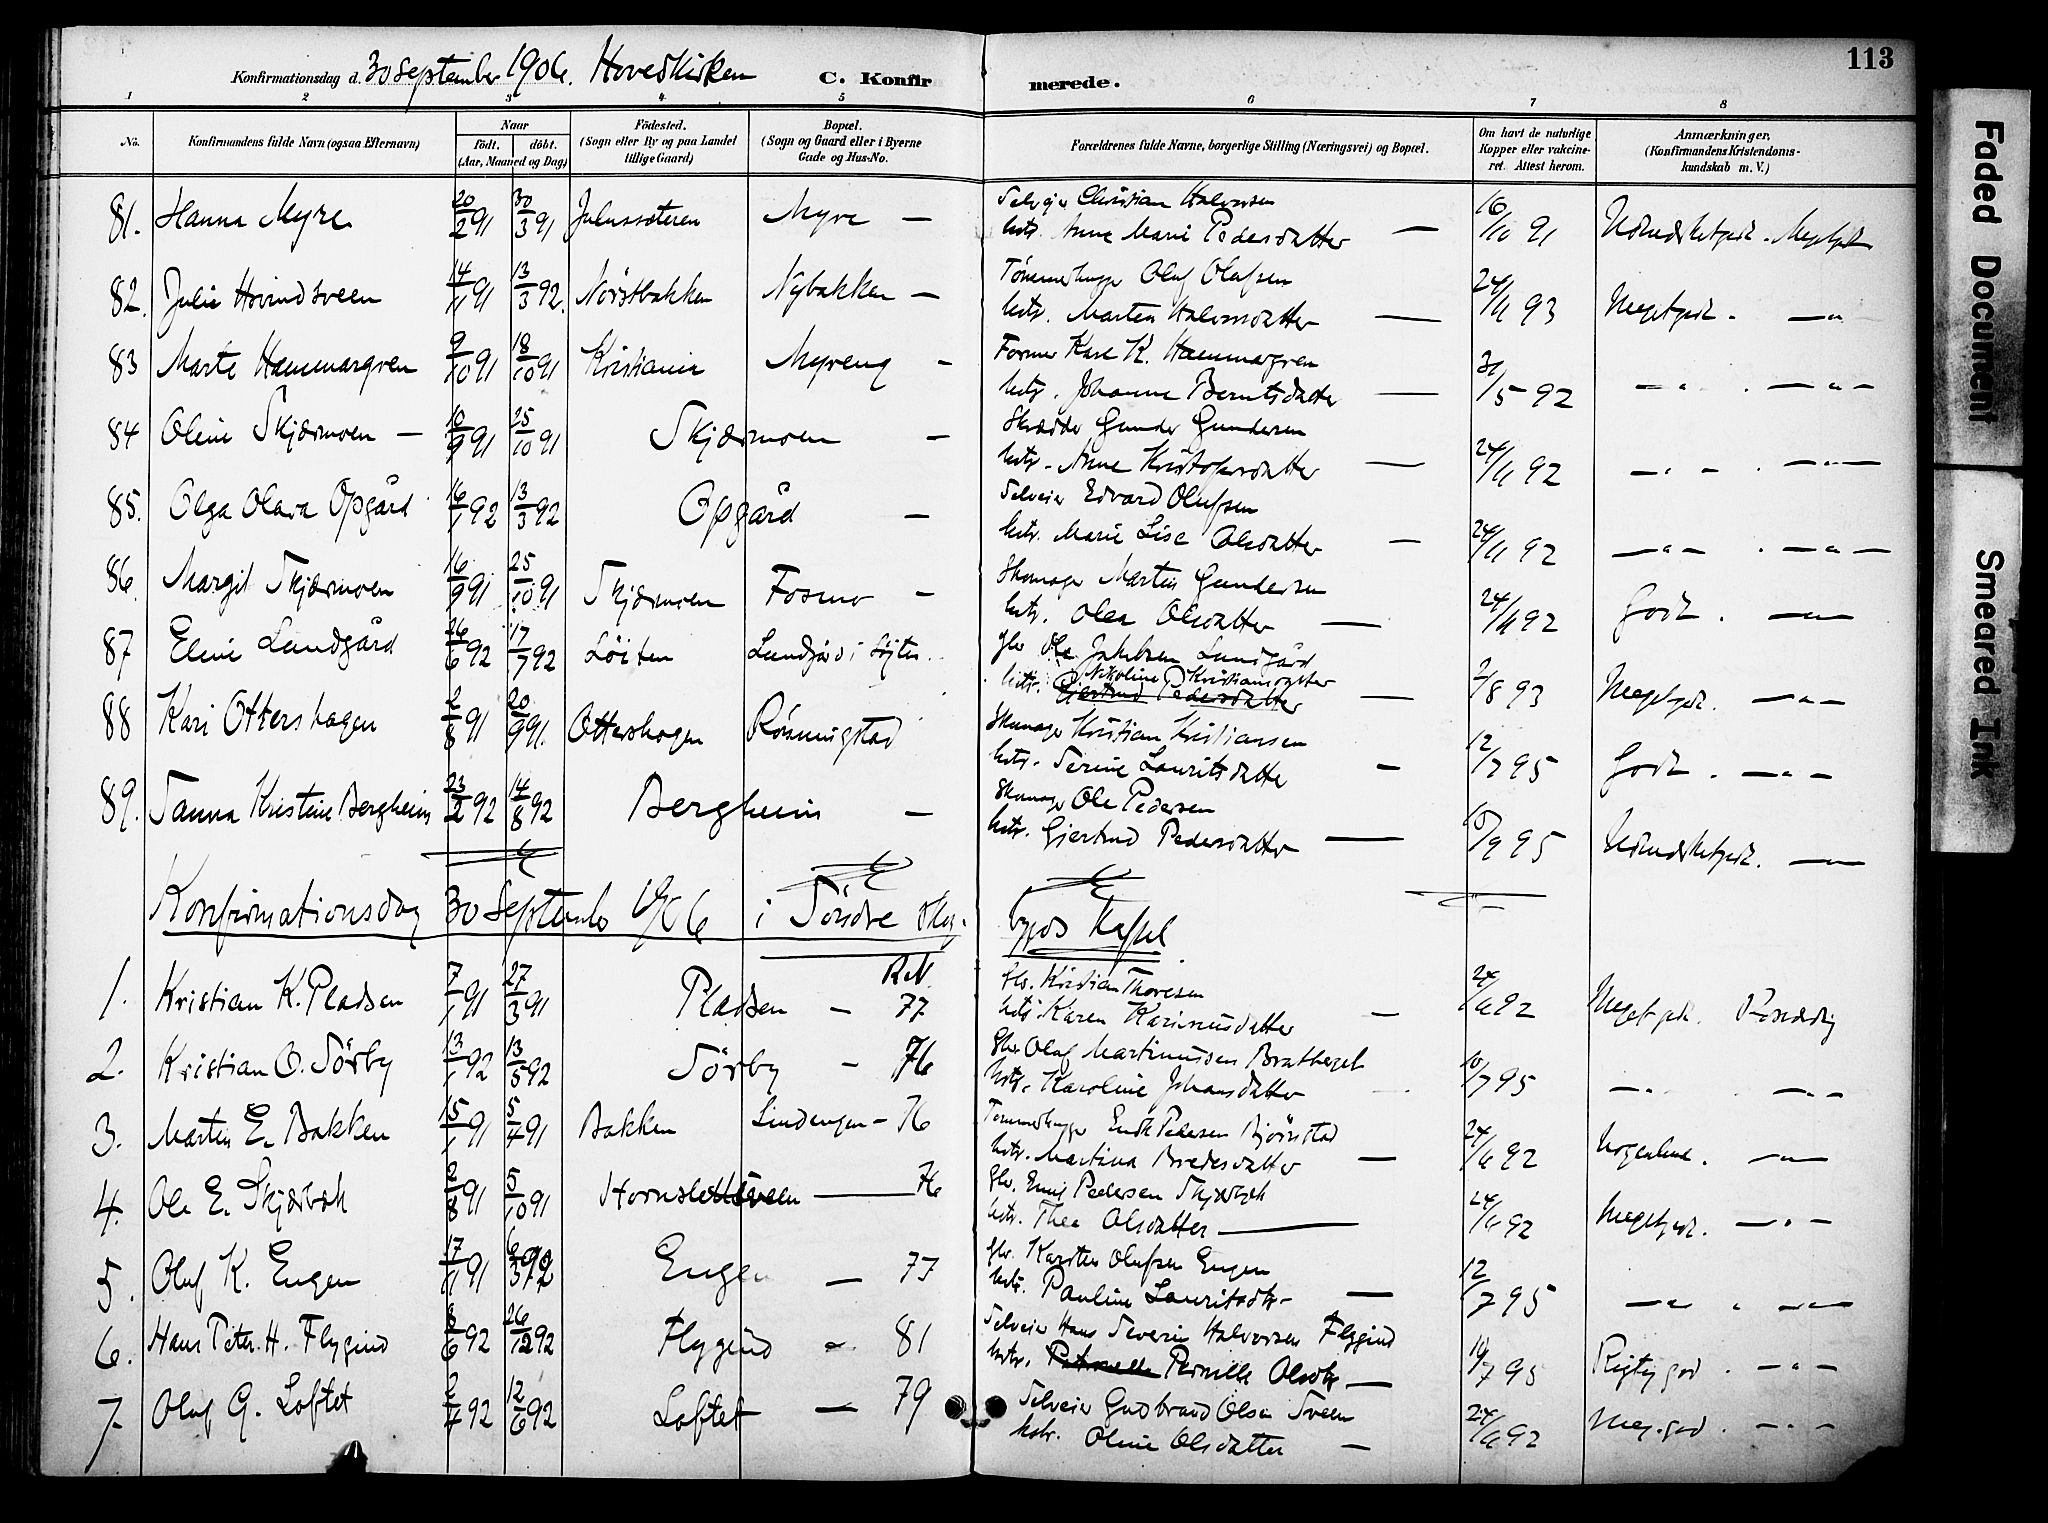 Konfirmationsdag d. 30 September 1906. Hovedkirken C. Konfirmerede. 113
1 2 3 4 5 6 7 8
No. Konfirmandens fulde Navn (ogsaa Efternavn) Naar født. døbt. (Aar, Maaned og Dag) Fødested. (Sogn eller By og paa Landet tillige Gaard) Bopæl. (Sogn og Gaard eller i Byerne Gade og Hus-No. Forældrenes fulde Navne, borgerlige Stilling (Næringsvei) og Bopæl. Om havt de naturlige Kopper eller vakcineret. Attest herom. Anmærkninger, (Konfirmandens Kristendomskundskab m. V.)
81. Hanna Myre 20/2 91 30/3 91 Julussæteren Myre — Selveier Christian Halvorsen
hstr. Anne Marie Pedersdatter — 16/10 91
82. Julie Hovindsveen 14/11 91 13/3 92. Nørstbakken Nybakken — Tømmerhugger Oluf Olufsen
hstr. Marten Halvorsdatter — 24/11 93 Megetgodt. —"—
83 Marte Hammargren 9/10 91 18/10 91 Kristiania Myreng — Former Karl K. Hammargren
hstr. Johanne Berntsdatter — 31/5 92 —"— . —"—
84 Oline Skjærmoen — 10/9 91 25/10 91 Skjærmoen — Skrædder Gunder Gundersen
hstr. Anne Kristofersdatter — 24/11 92 —"— . —"—
85. Olga Olava Opgård 16/1 92 13/3 92 Opgård — Selveier Edvard Olufsen
hstr. Marie Lise Olsdatter — 24/11 92 —"— . —"—
86. Margit Skjærmoen 16/9 91 25/10 91 Skjærmoen Fosmo — Skomager Martin Gundersen
hstr. Olea Olsdatter — 24/11 92 Godt. —"—
87 Eline Lundgård 26/6 92 17/7 92 Løiten Lundgård i Løiten. gbr Ole Jakobsen Lundgård
hstr. Nikoline Kristiansdatter Gjertrud Pedersdatter — 2/8 93 Megetgodt. —"—
88 Kari Ottershagen 2/8 91 20/9 91. Ottershagen Rønningstad Skomager Kristian Kristiansen
hstr. Serine Lauritsdatter — 12/7 95 Godt. —"—
89. Tanna Kristine Bergheim 23/2 92 14/8 92 Bergheim — Skomager Ole Pedersen
hstr. Gjertrud Pedersdatter — 10/9 95 —"—
Konfirmationsdag 30 September 1906 i Søndre Skogbygds Kapel
1. Kristian K. Pladsen 7/1 91 27/3 91 Pladsen — 77 Gbr. Kristian Thoresen
hstr Karen Karinusdatter — 24/11 92 Meget godt.
2. Kristian O. Sörby 13/1 92 13/5 92 Sörby — 76 Gbr Oluf Martinussen
hstr. Karoline Johansdatter 10/7 95 —"— —"—
3. Martin E. Bakken 15/1 91 5/4 91 Bakken Lindengen — 76 Tømmerhugger Erik Pedersen Bjørnstad
hstr. Martina Bredesdatter — 24/11 92 —"—
4. Ole E. Skjærbæk 2/8 91 5/10 91 Hornslettsveen — 76 Gbr. Emil Pedersen Skjærbæk
hstr. Thea Olsdatter — 24/11 92 Megetgodt. —"—
5. Oluf K. Engen 17/11 91 6/3 92 Engen — 77 Gbr. Karsten Olufsen Engen
hstr. Pauline Lauritsdtr — 12/7 95 —"— —"—
6. Hans Peter H. Flygind 8/6 92 26/12 92 Flygind — 81 Selveier Hans Severin Halvorsen Flygind
hstr. Pernille Olsdtr — 10/7 95 Rigtig god . —"—
7. Oluf G. Loftet 2/4 92 12/6 92 Loftet — 79 Selveier Gudbrand Olsen Sveen
hstr. Oline Olsdatter — 24/11 92 Meg. god . —"—
Faded Document
Smeared Ink